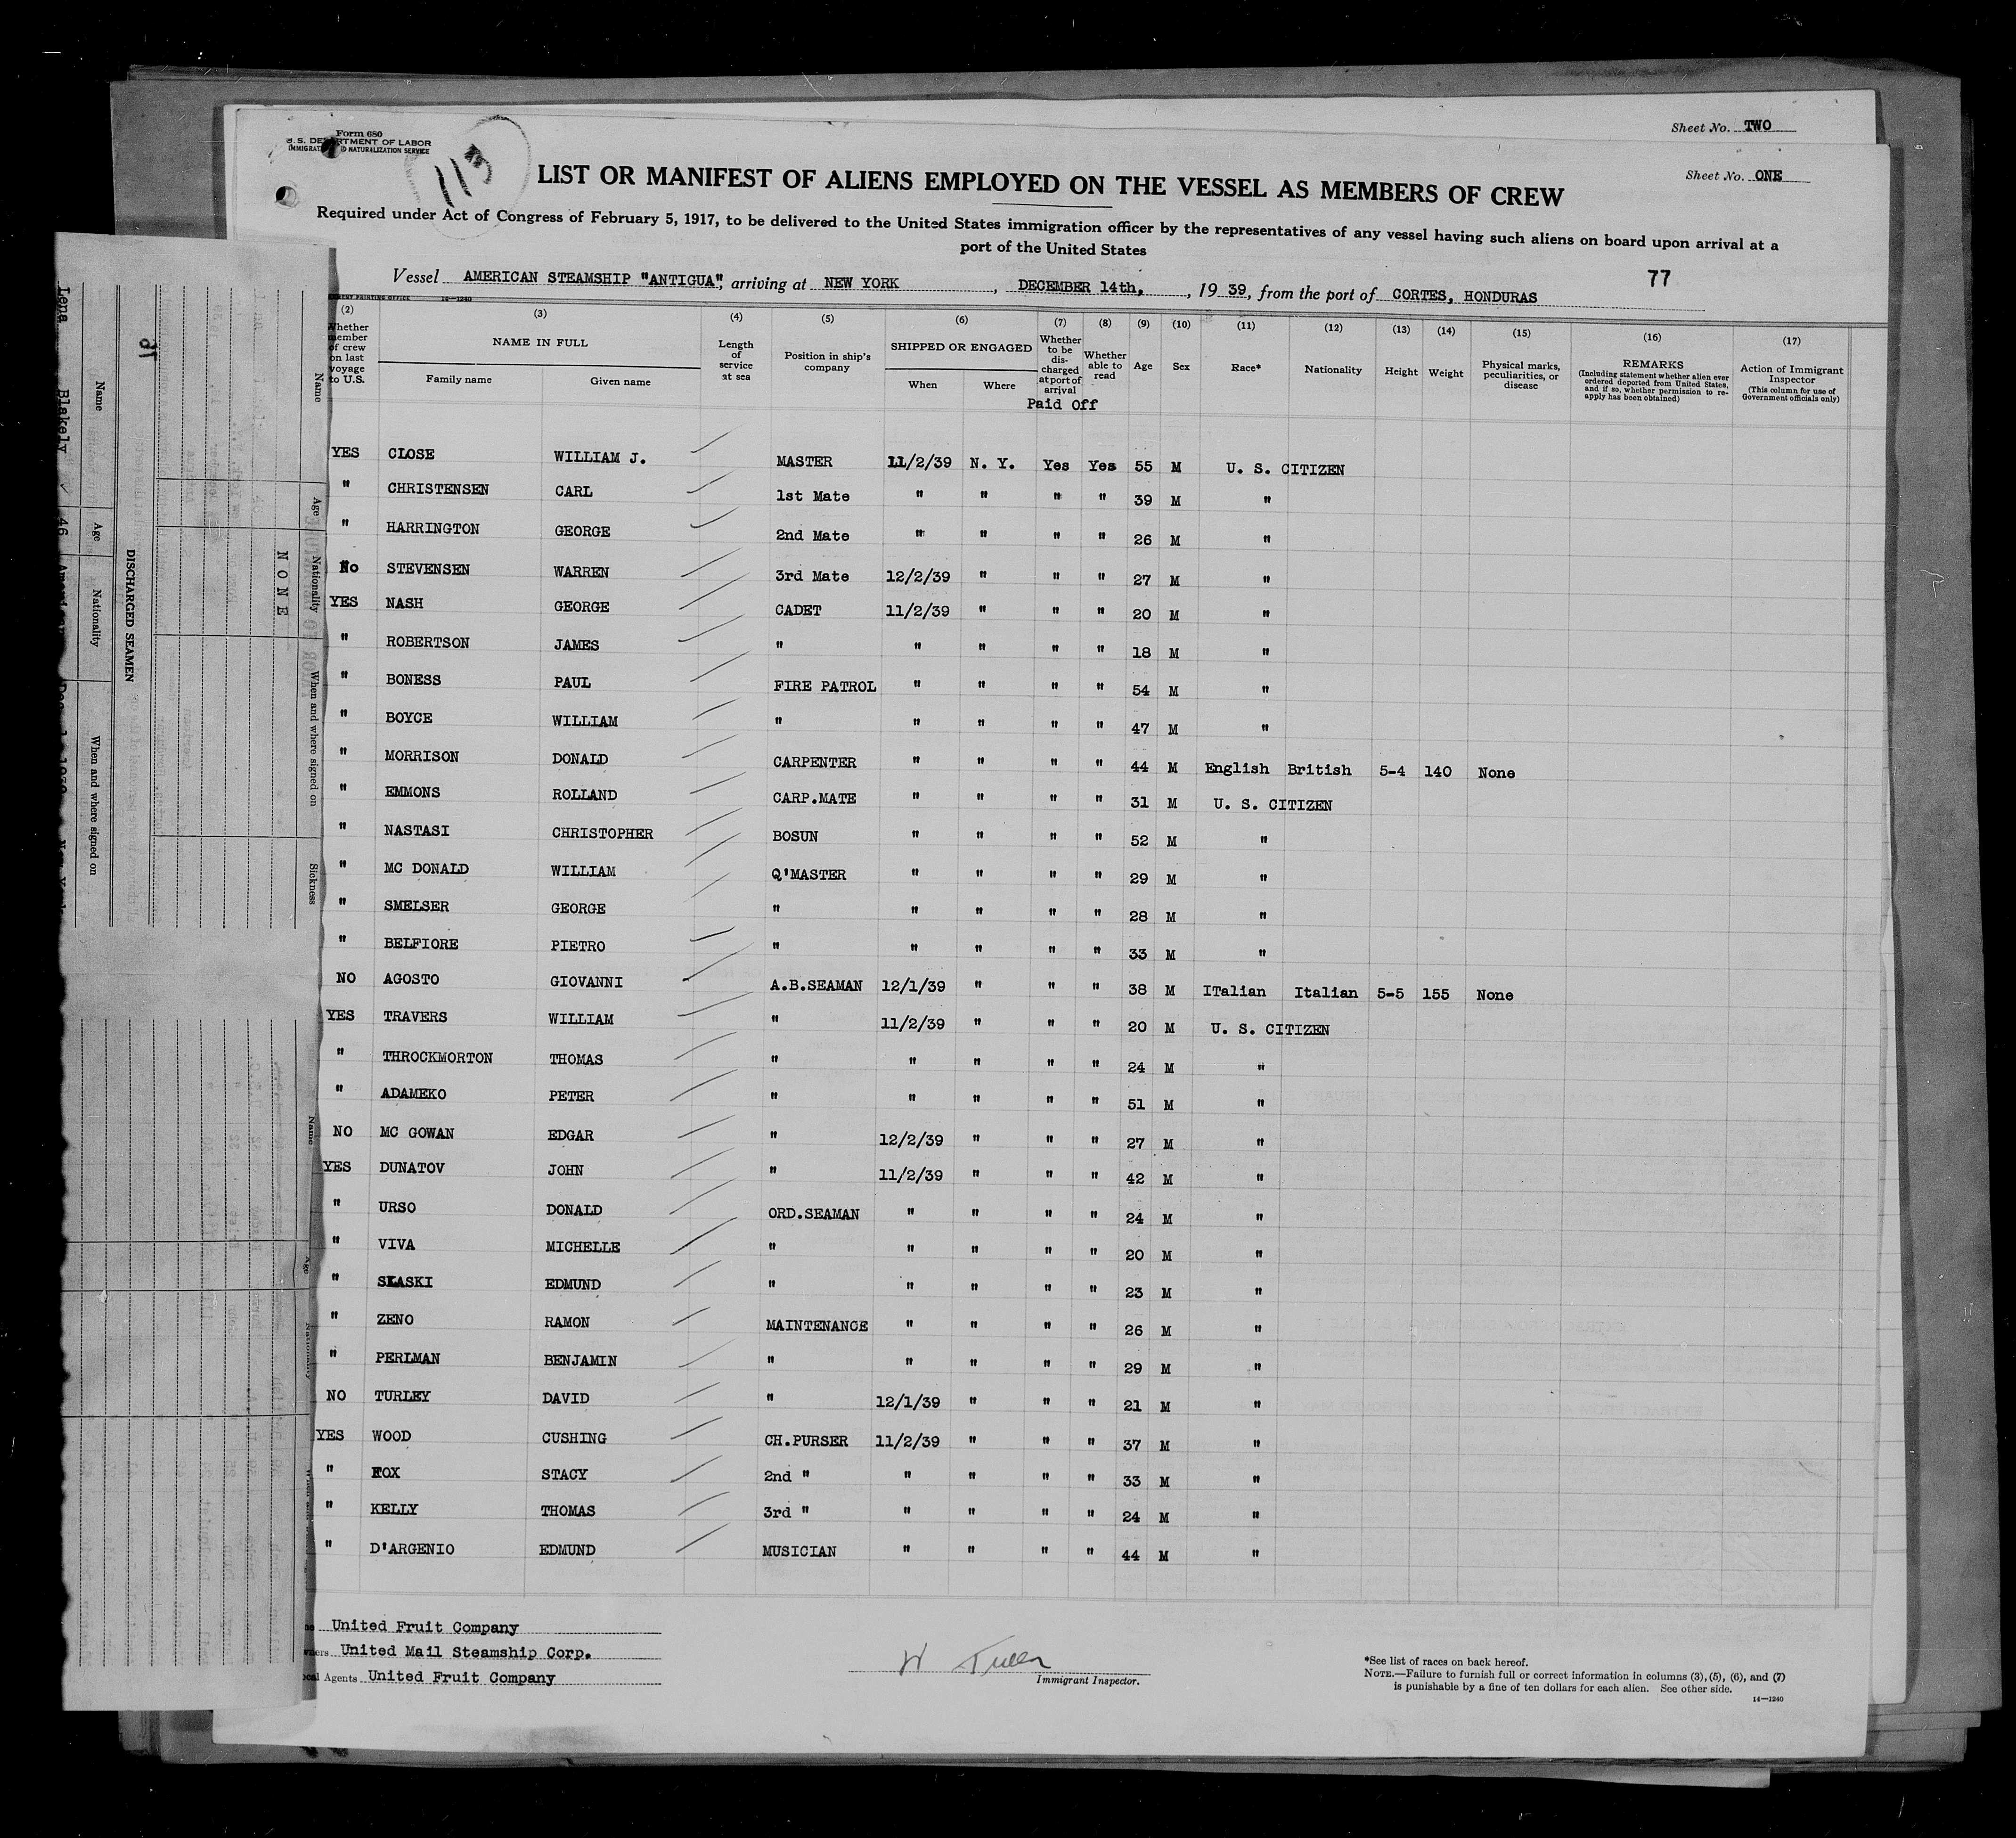 Sheet No. TWO
Form 680
U. S. DEPARTMENT OF LABOR
IMMIGRATION AND NATURALIZATION SERVICE
113
Sheet No. ONE
LIST OR MANIFEST OF ALIENS EMPLOYED ON THE VESSEL AS MEMBERS OF CREW
Required under Act of Congress of February 5, 1917, to be delivered to the United States immigration officer by the representatives of any vessel having such aliens on board upon arrival at a
port of the United States
77
Vessel AMERICAN STEAMSHIP "ANTIGUA", arriving at NEW YORK, DECEMBER 14th, , 19 39, from the port of CORTES, HONDURAS
PRINTING OFFICE 14—1240
(2) Whether member of crew on last voyage to U.S. (3) NAME IN FULL Family name Given name (4) Length of service at sea (5) Position in ship's company (6) SHIPPED OR ENGAGED When Where (7) Whether to be discharged at port of arrival (8) Whether able to read (9) Age (10) Sex (11) Race* (12) Nationality (13) Height (14) Weight (15) Physical marks, peculiarities, or disease (16) REMARKS (Including statement whether alien ever ordered deported from United States, and if so, whether permission to reapply has been obtained) (17) Action of Immigrant Inspector (This column for use of Government officials only)
Paid Off
YES CLOSE WILLIAM J. MASTER 11/2/39 N. Y. Yes Yes 55 M U. S. CITIZEN
" CHRISTENSEN CARL 1st Mate " " " " 39 M "
" HARRINGTON GEORGE 2nd Mate " " " " 26 M "
No STEVENSEN WARREN 3rd Mate 12/2/39 " " " 27 M "
YES NASH GEORGE CADET 11/2/39 " " " 20 M "
" ROBERTSON JAMES " " " " " 18 M "
" BONESS PAUL FIRE PATROL " " " " 54 M "
" BOYCE WILLIAM " " " " " 47 M "
" MORRISON DONALD CARPENTER " " " " 44 M English British 5-4 140 None
" EMMONS ROLLAND CARP.MATE " " " " 31 M U. S. CITIZEN
" NASTASI CHRISTOPHER BOSUN " " " " 52 M "
" MC DONALD WILLIAM Q'MASTER " " " " 29 M "
" SMELSER GEORGE " " " " " 28 M "
" BELFIORE PIETRO " " " " " 33 M "
NO AGOSTO GIOVANNI A.B.SEAMAN 12/1/39 " " " 38 M ITalian Italian 5-5 155 None
YES TRAVERS WILLIAM " 11/2/39 " " " 20 M U. S. CITIZEN
" THROCKMORTON THOMAS " " " " " 24 M "
" ADAMEKO PETER " " " " " 51 M "
NO MC GOWAN EDGAR " 12/2/39 " " " 27 M "
YES DUNATOV JOHN " 11/2/39 " " " 42 M "
" URSO DONALD ORD.SEAMAN " " " " 24 M "
" VIVA MICHELLE " " " " " 20 M "
" SLASKI EDMUND " " " " " 23 M "
" ZENO RAMON MAINTENANCE " " " " 26 M "
" PERLMAN BENJAMIN " " " " " 29 M "
NO TURLEY DAVID " 12/1/39 " " " 21 M "
YES WOOD CUSHING CH.PURSER 11/2/39 " " " 37 M "
" FOX STACY 2nd " " " " " 33 M "
" KELLY THOMAS 3rd " " " " " 24 M "
" D'ARGENIO EDMUND MUSICIAN " " " " 44 M "
United Fruit Company
United Mail Steamship Corp.
Agents United Fruit Company
Immigrant Inspector.
*See list of races on back hereof.
NOTE.—Failure to furnish full or correct information in columns (3), (5), (6), and (7)
is punishable by a fine of ten dollars for each alien. See other side.
14—1240
76
Name Age Nationality When and where signed on Sickness
NONE
DISCHARGED SEAMEN
Name Age Nationality When and where signed on
Lena Blakely 46
Name Age